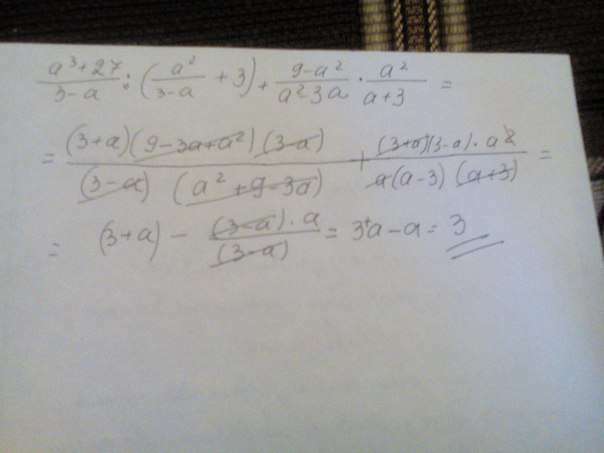 a³+27/3-a : (a²/3-a + 3) + 9-a²/a²-3a · a²/a+3 =
= (3+a)(9-3a+a²)(3-a)/(3-a)(a²+9-3a) + (3+a)(3-a)·a²/a(a-3)(a+3) =
= (3+a) - (3-a)·a/(3-a) = 3+a-a = 3